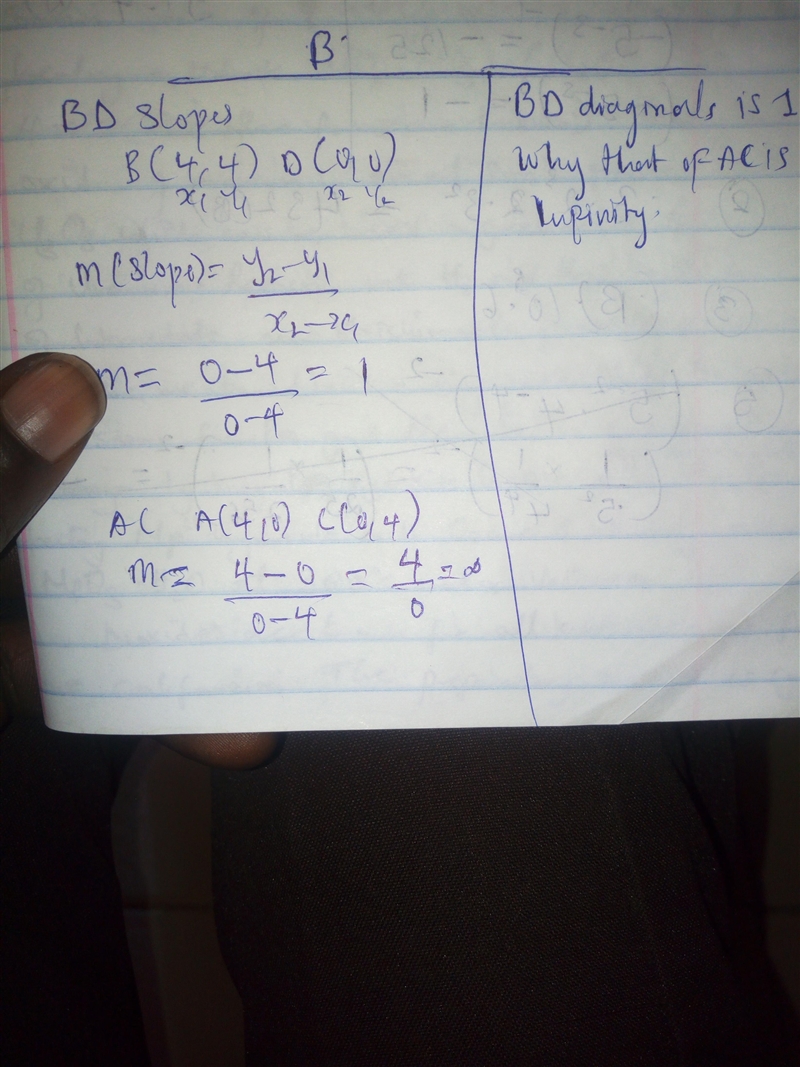 B
BD Slopes
B(4,4) D(0,0)
x₁ y₁ x₂ y₂
M(Slope) = y₂-y₁
x₂-x₁
m = 0-4 = 1
0-4
AC A(4,0) C(0,4)
M = 4-0 = 4 = ∞
0-4 0
BD diagonals is 1
Why that of AC is
Infinity.